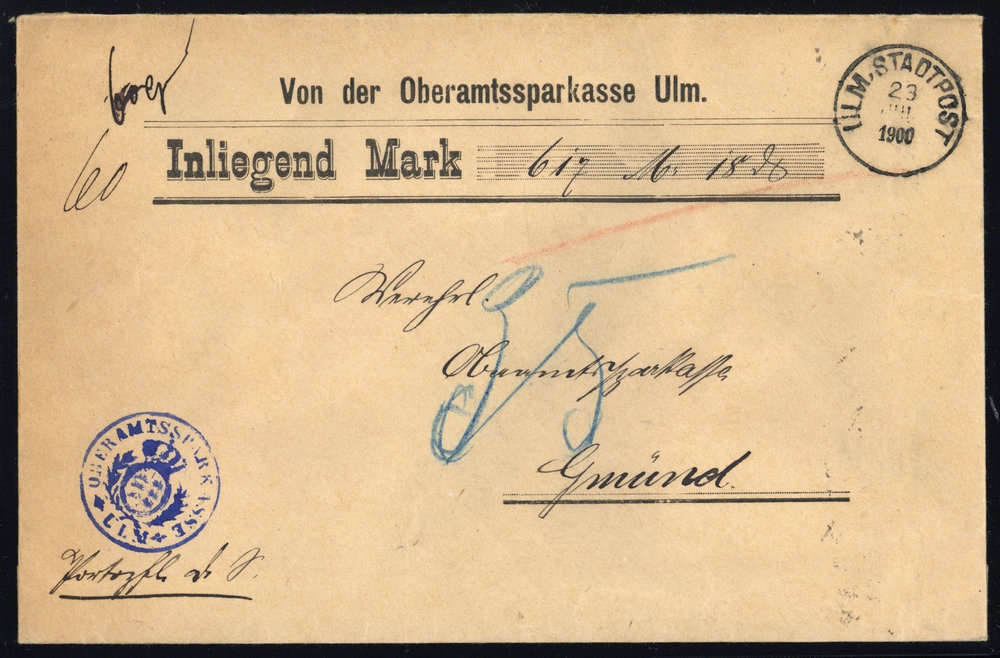 Von der Oberamtssparkasse Ulm.
ULM. STADTPOST
23
JUL
1900
Inliegend Mark 617 M. 18 ₰
60
Verehrl.
Oberamtssparkasse
Gmünd.
35
OBERAMTSSPARKASSE ULM
Portopfl. D. S.